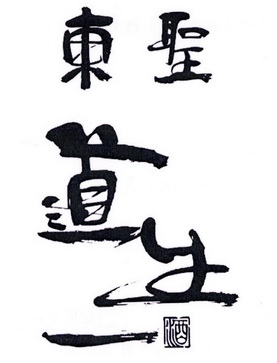 東聖
道生一
酒